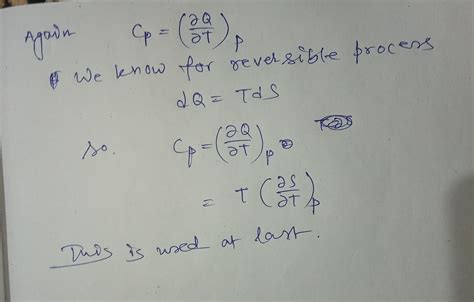 Again Cp = (∂Q/∂T)p
We know for reversible process
dQ = TdS
so. Cp = (∂Q/∂T)p
= T (∂S/∂T)p
This is used at last.